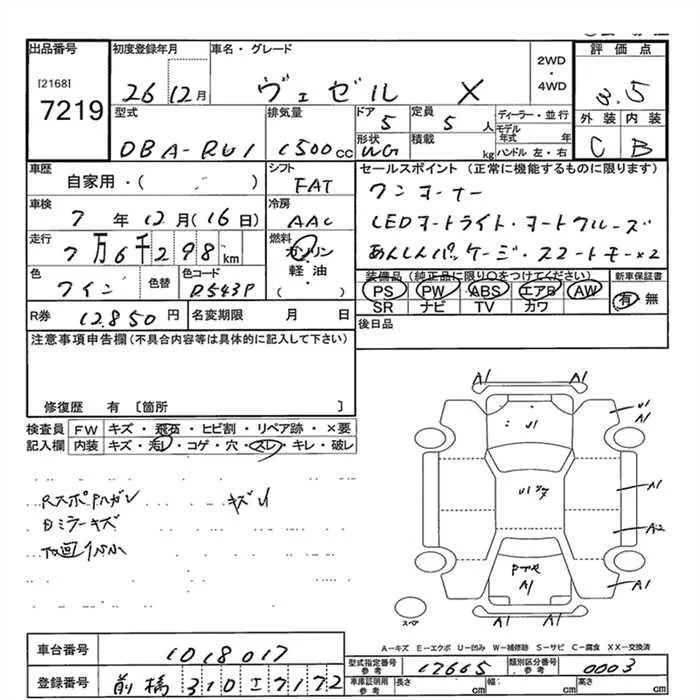 出品番号
[2168]
7219
初度登録年月
26 12月
車名・グレード
ヴェゼル X
2WD
・
4WD
評価点
3.5
型式
DBA-RU1
排気量
1500cc
ドア
5
定員
5 人
ディーラー・並行
モデル年式 年
ハンドル 左・右
形状
WG
積載
kg
外装 内装
C B
車歴
自家用・( )
シフト
FAT
セールスポイント (正常に機能するものに限ります)
ワンオーナー
LEDオートライト・オートクルーズ
あんしんパッケージ・スマートキー×2
車検
7 年 12月(16日)
冷房
AAC
走行
7万6千298km
燃料
ガソリン
軽・油
( )
色
ワイン
色替
色コード
R543P
装備品 (純正品に限り○をつけてください)
PS PW ABS エアB AW
SR ナビ TV カワ
新車保証書
有 無
R券
12,850 円
名変期限 月 日
後日品
注意事項申告欄(不具合内容等は具体的に記入して下さい)
修復歴 有 〔箇所 〕
検査員
記入欄
FW キズ・飛石・ヒビ割・リペア跡・×要
内装 キズ・汚レ・コゲ・穴・スレ・キレ・破レ
キズレ
Dミラーキズ
A1 A1
U1
U1
A1
A1
A2
A1
A1
A1 A1
スペア
A-キズ E-エクボ U-凹み W-補修跡 S-サビ C-腐食 XX-交換済
車台番号
1018017
登録番号
前橋 310 7172
型式指定番号
参考
17665
類別区分番号
参考
0003
車庫証明用
参考
長さ cm
幅 cm
高さ cm